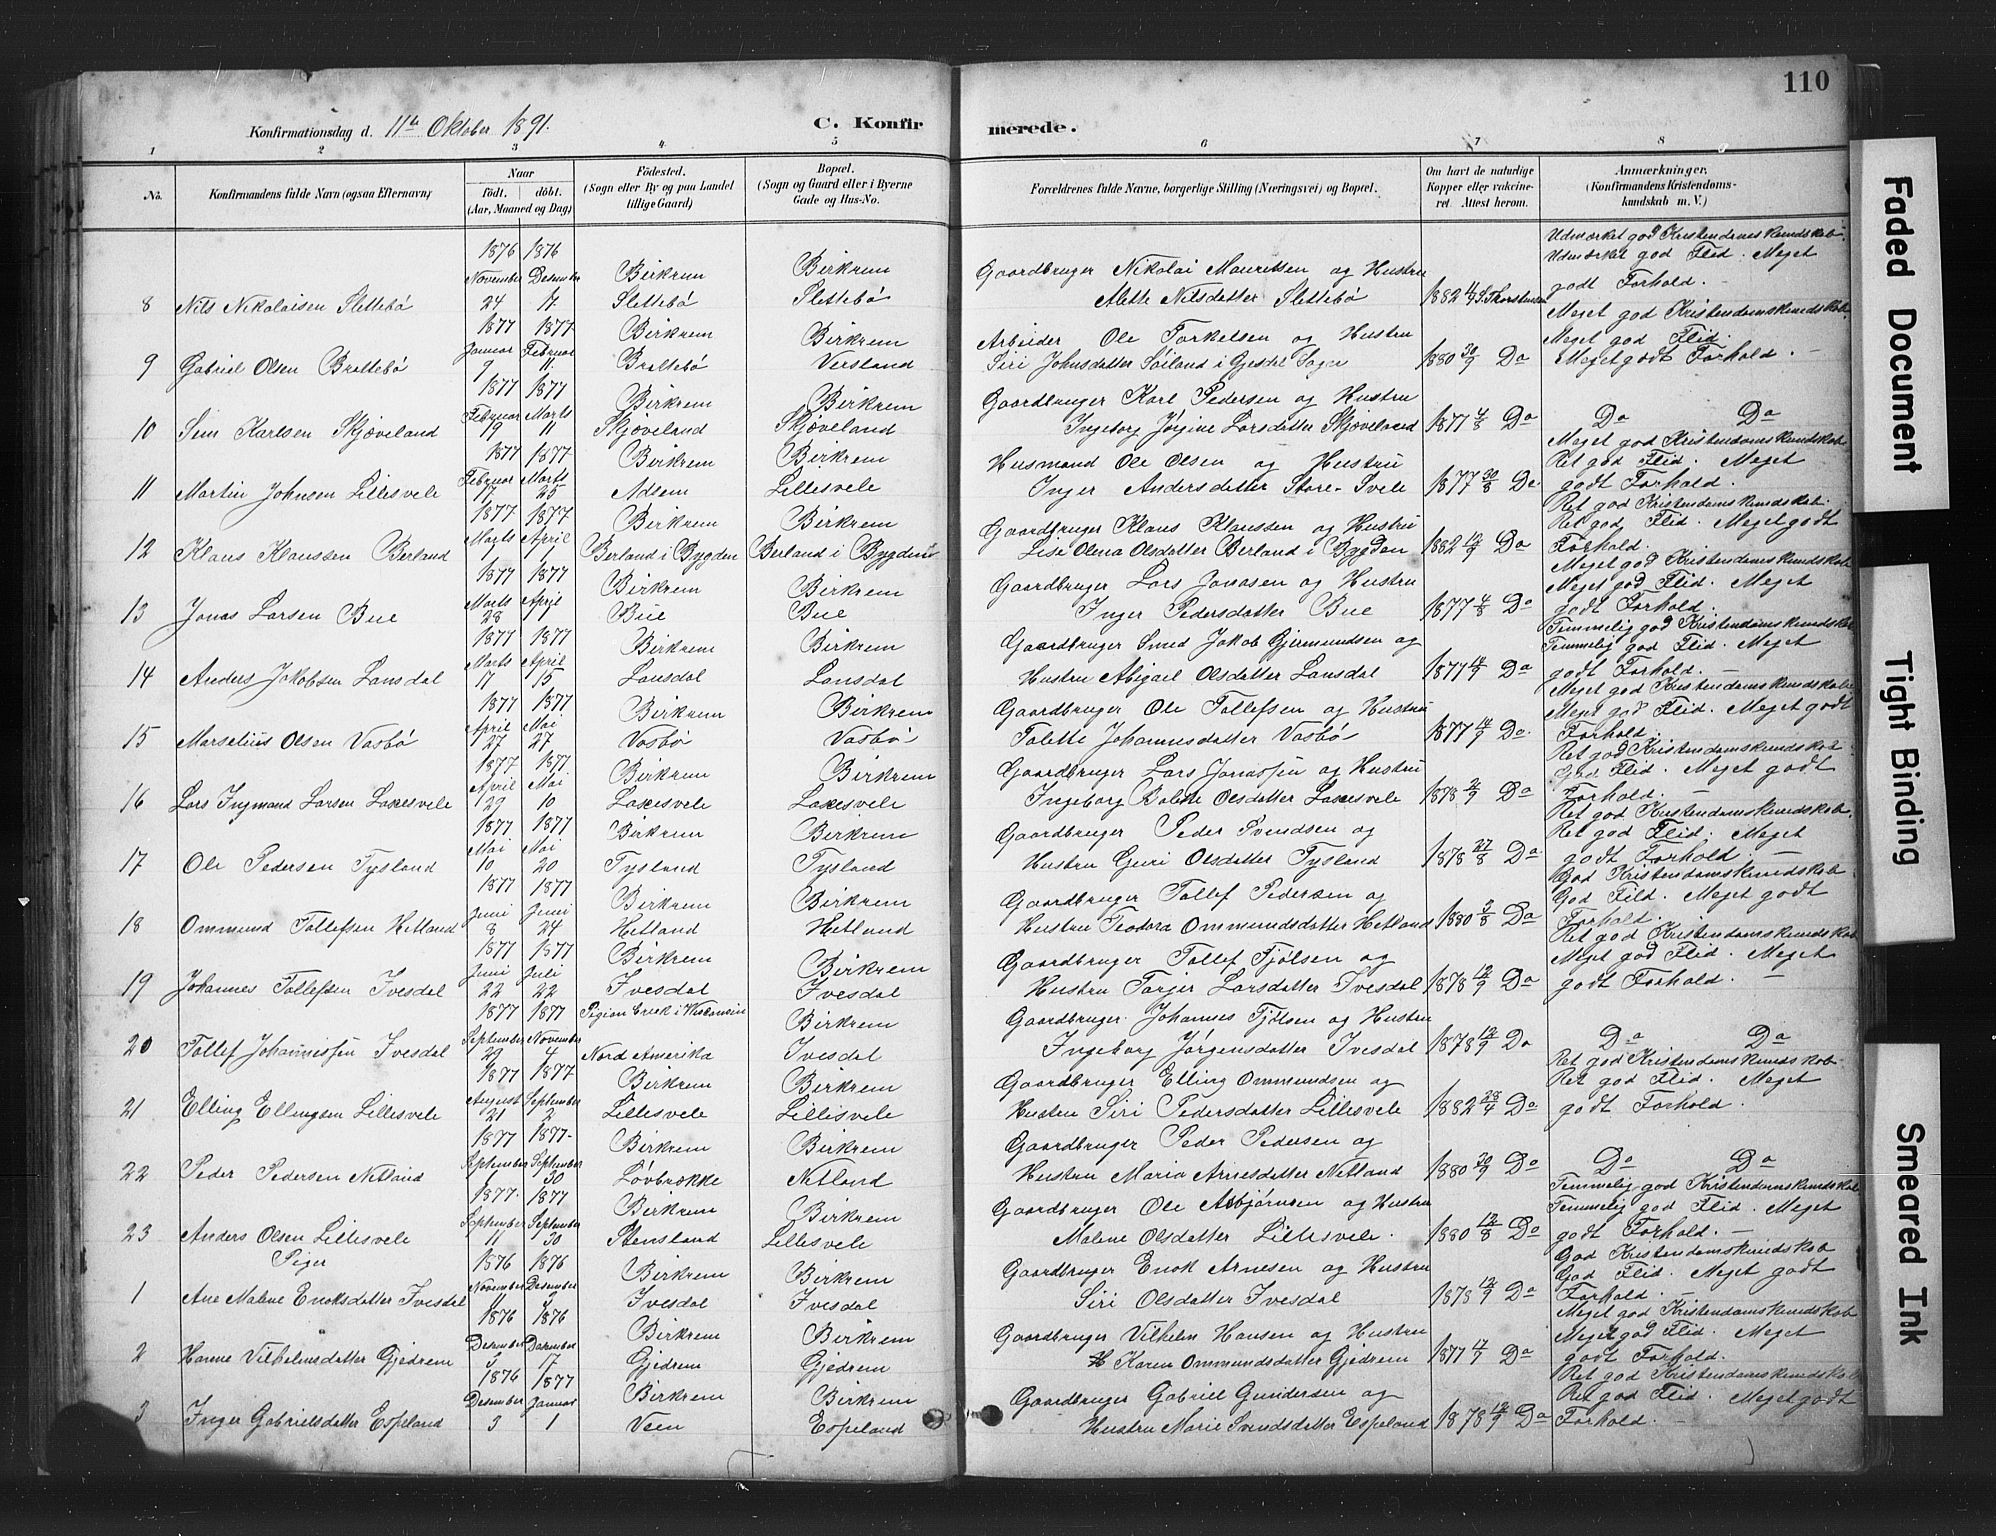 110
Konfirmationsdag d. 11te Oktober 1891.
C. Konfirmerede.
1 2 3 4 5 6 7 8
No. Konfirmandens fulde Navn (ogsaa Efternavn) Naar født. døbt. (Aar, Maaned og Dag) Fødested. (Sogn eller By og paa Landet tillige Gaard) Bopæl. (Sogn og Gaard eller i Byerne Gade og Hus-No. Forældrenes fulde Navne, borgerlige Stilling (Næringsvei) og Bopæl. Om havt de naturlige Kopper eller vaccineret. Attest herom. Anmærkninger. (Konfirmandens Kristendomskundskab m. V.)
1876 1876 Udmærket god Kristendomskundskab.
November Desember Birkrem Birkrem Gaardbruger Nikolai Mauritsen og Hustru Udmærket god Flid. Meget
8 Nils Nikolaisen Slettebø 24 17 Slettebø Slettebø Mette Nilsdatter Slettebø 1882 godt Forhold.
1877 1877 Birkrem Birkrem Arbeider Ole Torkelsen og Hustru Meget god Kristendomskundskab.
Januar Februar Meget god Flid.
9 Gabriel Olsen Brattebø 9 11 Brattebø Versland Siri Johnsdatter Søiland i Gjesdal Sogn 1880 30/9 Do Meget godt Forhold. —
1877 1877 Birkrem Birkrem Gaardbruger Karl Pedersen og Hustru
Februar Marts
10 Sem Karlsen Skjæveland 19 11 Skjæveland Skjæveland Ingeborg Jørgine Larsdatter Skjæveland 1877 4/8 Do Do Do
1877 1877 Birkrem Birkrem Husmand Ole Olsen og Hustru Meget god Kristendomskundskab
Februar Marts Ret god Flid. Meget
11 Martin Johnsen Lillesvele 17 25 Adsem Lillesvele Inger Andersdatter Store-Svele 1877 30/8 Do godt Forhold.
1877 1877 Birkrem Birkrem Gaardbruger Klaus Klaussen og Hustru Ret god Kristendomskundskab.
Marts April Ret god Flid. Meget godt
12 Klaus Klaussen Berland 1 1 Berland i Bygden Berland i Bygden Lise Olena Olsdatter Berland i Bygden 1882 12/9 Do Forhold.
1877 1877 Birkrem Birkrem Gaardbruger Lars Jonasen og Hustru Meget god Kristendomskundskab
Marts April Meget god Flid. Meget
13 Jonas Larsen Bue 28 Bue Bue Inger Pedersdatter Bue 1877 4/8 Do godt Forhold.
1877 1877 Birkrem Birkrem Gaardbruger Smed Jakob Gjermundsen og Temmelig god Kristendomskundskab
Marts April Temmelig god Flid. Meget
14 Anders Jakobsen Lansdal 17 15 Lansdal Lansdal Hustru Abigael Olsdatter Lansdal 1877 Do godt Forhold. —
1877 1877 Birkrem Birkrem Gaardbruger Ole Tollefsen og Hustru Meget god Kristendomskundskab
April Mai Meget god Flid. Meget godt
15 Marselius Olsen Vasbø 27 27 Vasbø Vasbø Tolette Johannesdatter Vasbø 1877 Do. Forhold.
1877 1877 Birkrem Birkrem Gaardbruger Lars Jonassen og Hustru Ret god Kristendomskundskab
April Mai God Flid. Meget godt
16 Lars Ingmand Larsen Laxesvele 29 10 Laxesvele Laxesvele Ingeborg Bolette Olsdatter Laxesvele 1878 2/9 Do Forhold. —
1877 1877 Birkrem Birkrem Gaardbruger Peder Svendsen og Ret god Kristendomskundskab.
Mai Mai Ret god Flid. Meget
17 Ole Pedersen Tysland 10 20 Tysland Tysland Hustru Guri Olsdatter Tysland 1878 27/8 Do godt Forhold. —
1877 1877 Birkrem Birkrem Gaardbruger Tollef Pedersen og God Kristendomskundskab
Juni Juni God Flid. Meget godt
18 Ommund Tollefsen Hetland 8 24 Hetland Hetland Hustru Teodora Ommundsdatter Hetland 1880 3/8 Do Forhold.
1877 1877 Birkrem Birkrem Gaardbruger Tollef Tjølsen og Ret god Kristendomskundskab
Juni Juli Meget god Flid. Meget
19 Johannes Tollefsen Ivesdal 22 22 Ivesdal Ivesdal Hustru Torjer Larsdatter Ivesdal 1878 12/9 Do godt Forhold. —
1877 1877 Pigion Creek i Wisconsin Birkrem Gaardbruger Johannes Tjølsen og Hustru
September November
20 Tollef Johannessen Ivesdal 29 4 Nord Amerika Ivesdal Ingeborg Jørgensdatter Ivesdal 1878 12/9 Do Do Do
1877 1877 Birkrem Birkrem Gaardbruger Elling Ommundsen og Ret god Kristendomskundskab
August September Ret god Flid. Meget
21 Elling Ellingsen Lillesvele 21 2 Lillesvele Lillesvele Hustru Siri Pedersdatter Lillesvele 1882 28/4 Do godt Forhold.
1877 1877 Birkrem Birkrem Gaardbruger Peder Pedersen og
September September
22 Peder Pedersen Netland 1 30 Løvbrække Netland Hustru Maria Arnesdatter Netland 1880 30/9 Do Do Do
1877 1877 Birkrem Birkrem Gaardbruger Ole Asbjørnsen og Hustru Temmelig god Kristendomskundskab
September September Temmelig god Flid. Meget
23 Anders Olsen Lillesvele 11 30 Stensland Lillesvele Malene Olsdatter Lillesvele. 1880 12/8 Do godt Forhold. —
Piger
1876 1876 Birkrem Birkrem Gaardbruger Enok Arnesen og Hustru God Kristendomskundskab
November Desember God Flid. Meget godt
1 Ane Malene Enoksdatter Ivesdal Ivesdal Ivesdal Siri Olsdatter Ivesdal 1878 12/9 Do Forhold. —
1876 1876 Birkrem Birkrem Gaardbruger Vilhelm Hansen og Hustru Meget god Kristendomskundskab
Desember Desember Meget god Flid. Meget
2 Hanne Vilhelmsdatter Gjedrem 3 17 Gjedrem Gjedrem Karen Ommundsdatter Gjedrem 1877 17/9 Do godt Forhold.
1876 1877 Birkrem Birkrem Gaardbruger Gabriel Gundersen og Ret god Kristendomskundskab
Desember Januar Ret god Flid. Meget godt
3 Inger Gabrielsdatter Espeland 3 1 Veen Espeland Hustru Marie Svendsdatter Espeland 1878 12/9 Do Forhold. —
Faded Document
Tight Binding
Smeared Ink